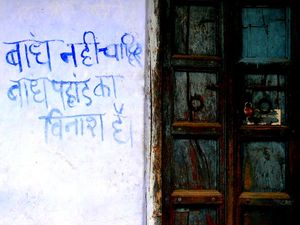 बांध नही चाहिए
बांध पहाड का
विनाश है।